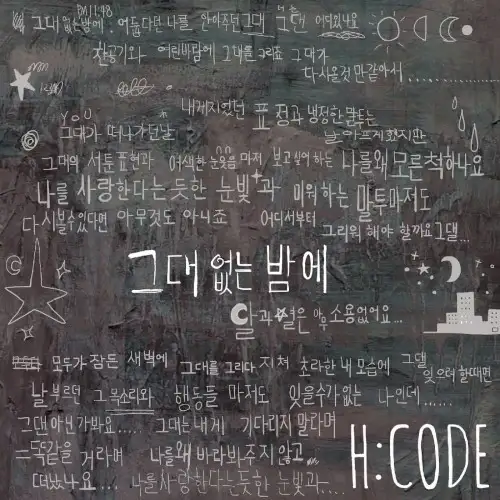 그대 없는 밤에. 어둡다던 나를 안아주던 그대 그댄 어디있나요
찬공기와 여린바람에 그대를 그리죠 그대가
다시올것 만같아서..............
YOU
내게지었던 표정과 냉정한 말투는
그대가 떠나가던날 날 아프게했지만
그대의 서툰표현과 어색한 눈웃음 마저 보고싶어 하는 나를왜 모른척하나요
나를 사랑한다는 듯한 눈빛과 미워하는 말투마저도
다시볼수있다면 아무것도 아니죠 어디서부터
그리워 해야 할까요 그댈...
그대 없는 밤에
달과 별은 아무 소용없어요...
모두가 잠든 새벽에 그대를 그리다 지쳐 초라한 내 모습에 그댈
잊으려 할때면
날 부르던 그 목소리와 행동들 마저도 잊을수가 없는 나인데......
그댄 아닌가봐요..... 그대는 내게 기다리지 말라며
똑같을 거라며 나를왜 바라봐주지 않고
떠났나요.... 나를사랑한다는듯한 눈빛과...
H:CODE